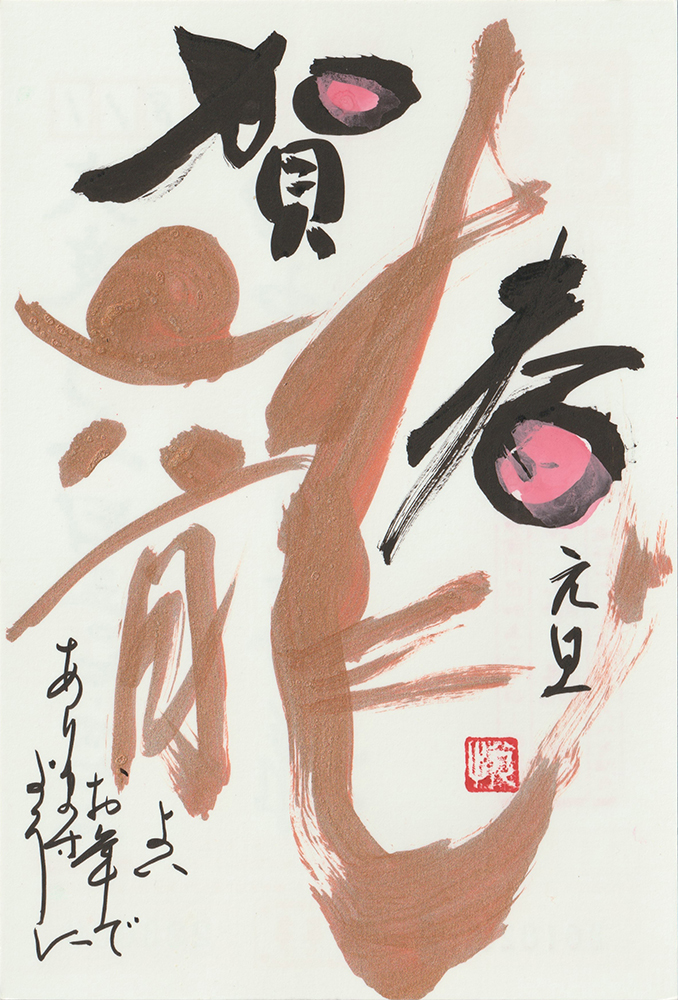 賀春
龍
元旦
よい
お年で
ありますように